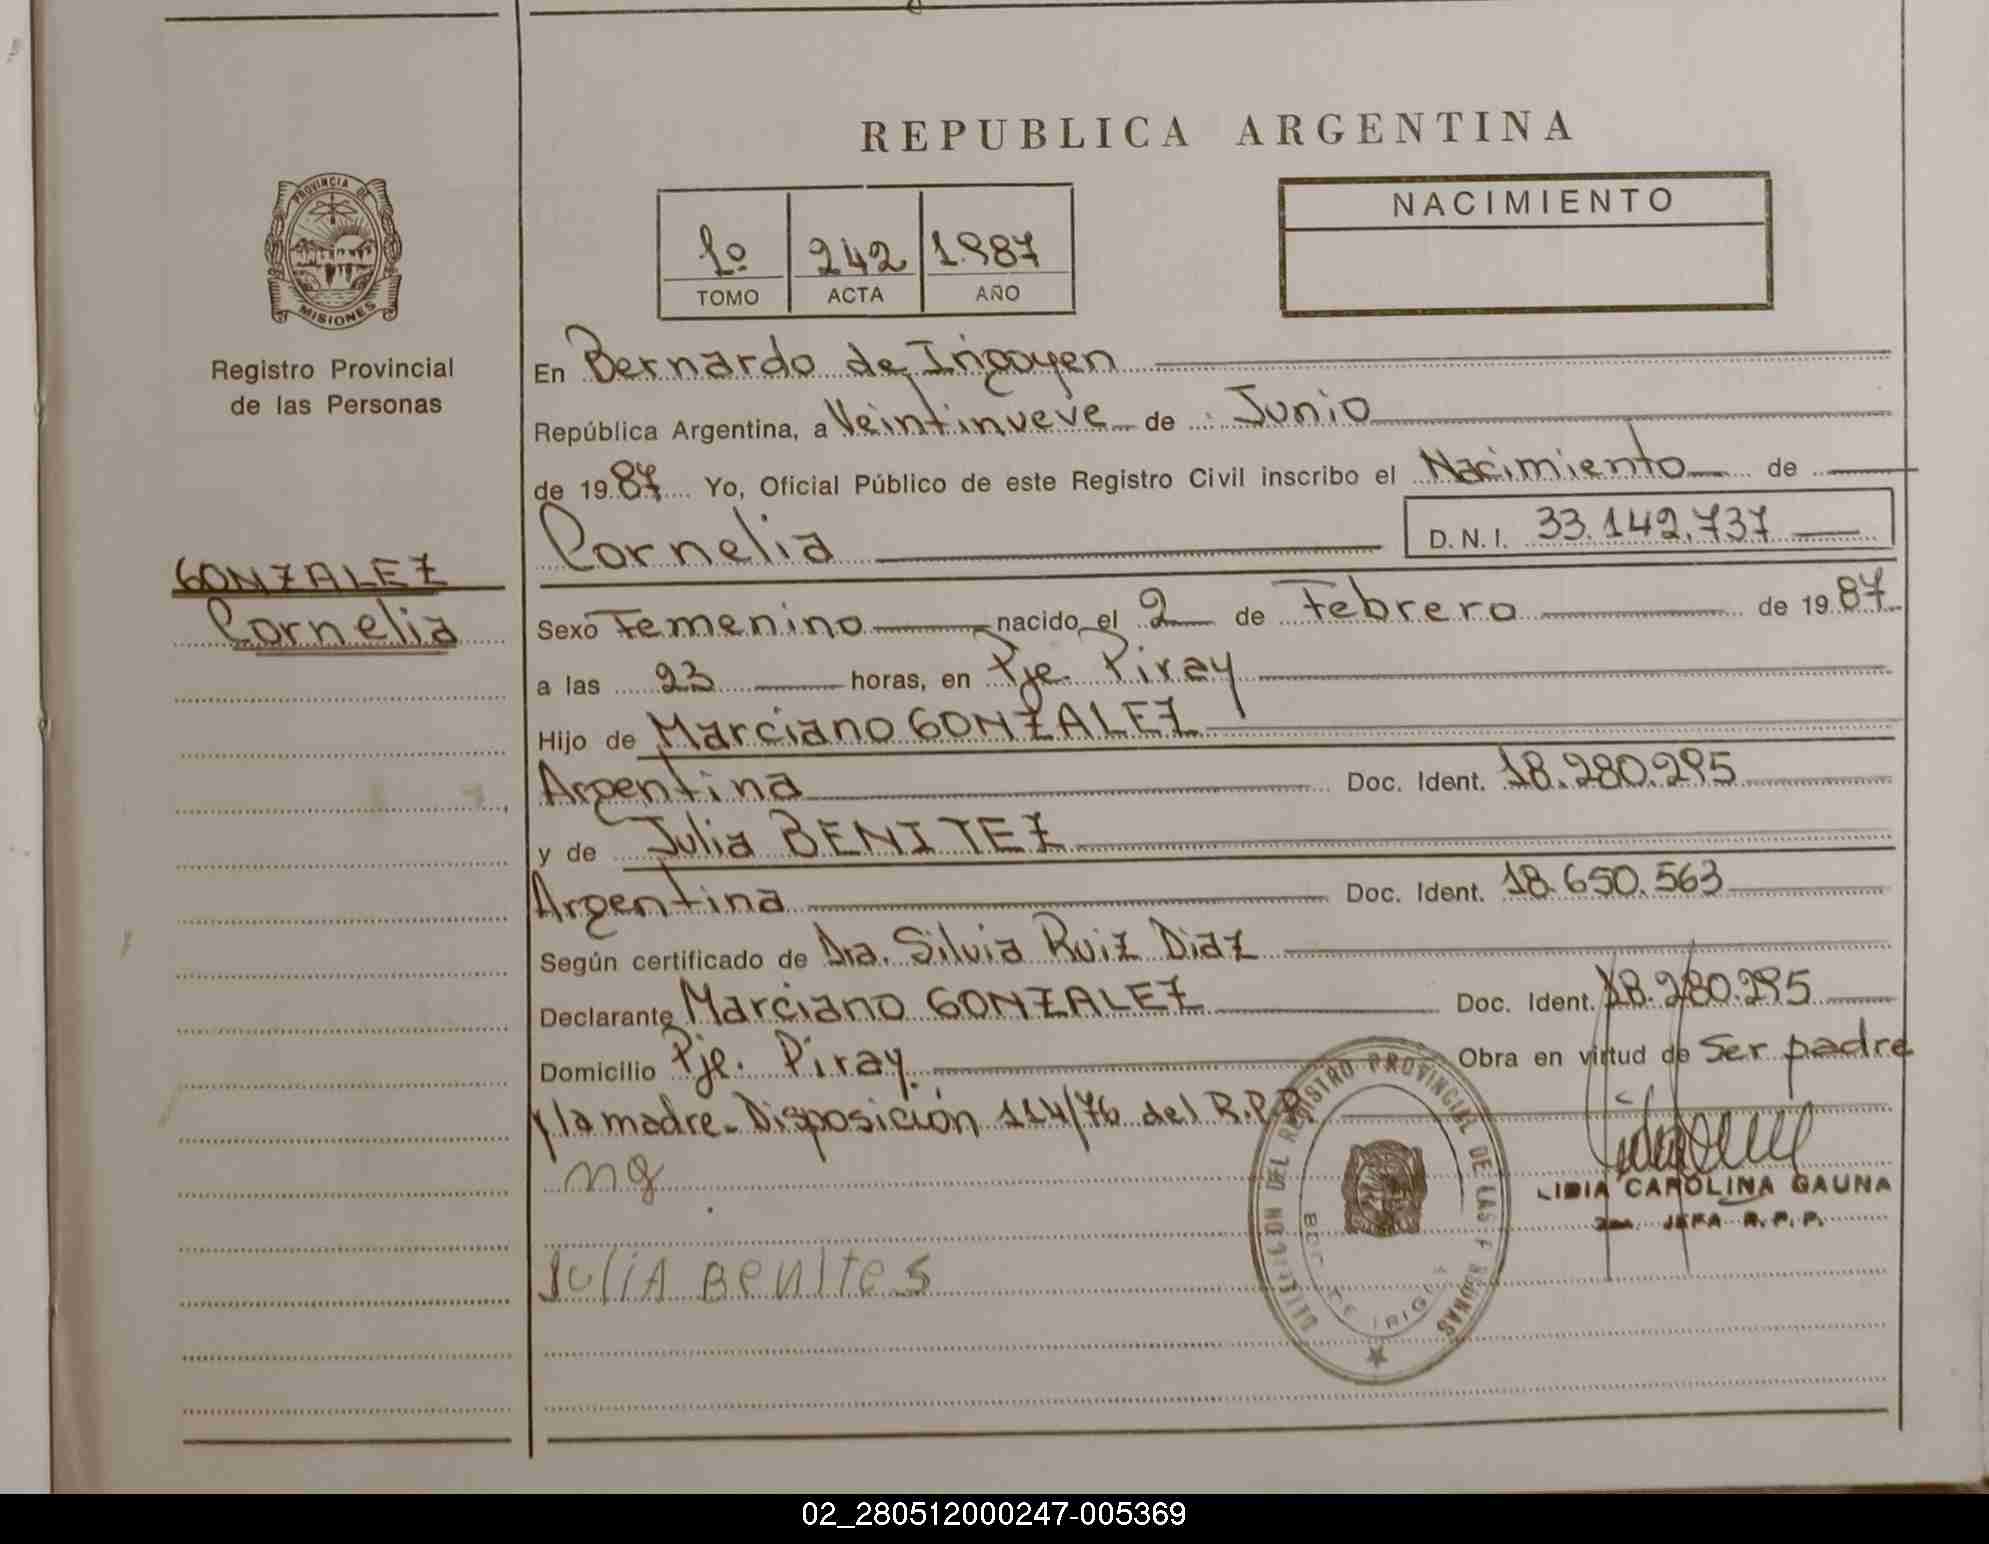 REPUBLICA ARGENTINA
PROVINCIA DE
MISIONES
Registro Provincial
de las Personas
NACIMIENTO
1º 242 1.987
TOMO ACTA AÑO
En Bernardo de Irigoyen
República Argentina, a Veintinueve de Junio
de 19 87 Yo, Oficial Público de este Registro Civil inscribo el Nacimiento de
Cornelia D.N.I. 33.142.737
GONZALEZ
Cornelia
Sexo Femenino nacido el 2 de Febrero de 19 87
a las 23 horas, en Pje. Piray
Hijo de Marciano GONZALEZ
Argentina Doc. Ident. 18.280.295
y de Julia BENITEZ
Argentina Doc. Ident. 18.650.563
Según certificado de Dra. Silvia Ruiz Diaz
Declarante Marciano GONZALEZ Doc. Ident. 18.280.295
Domicilio Pje. Piray. Obra en virtud de Ser padre
y la madre. Disposición 114/76 del R.P.P.
mg
LIDIA CAROLINA GAUNA
JEFA R.P.P.
JuliA Benites
DEL REGISTRO PROVINCIAL DE LAS PERSONAS
02_280512000247-005369